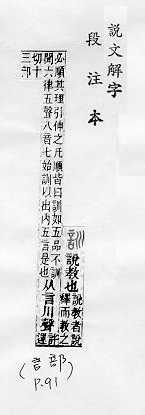 說文解字
段注本
訓
說教也說教者說釋而教之
必順其理引伸之凡順皆曰訓如五品不訓
聞六律五聲八音七始訓以出内五言是也从言川聲許運
切十三部
(言部)
P.91